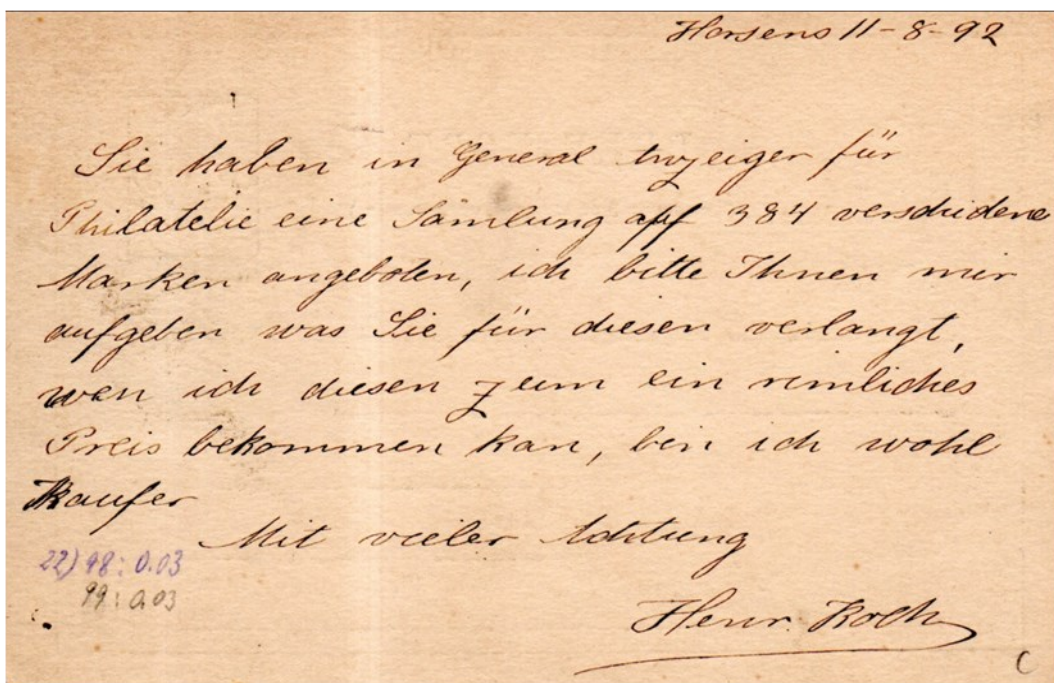 Horsens 11-8-92
Sie haben in General Anzeiger für
Philatelie eine Samlung auf 384 verschidene
Marken angeboten, ich bitte Ihnen mir
aufgeben was Sie für diesen verlangt,
wen ich diesen zum ein rimliches
Preis bekommen kan, bin ich wohl
Kaufer
Mit vieler Achtung
22) 98: 0.03
99: 0.03
Henr. Koch
C